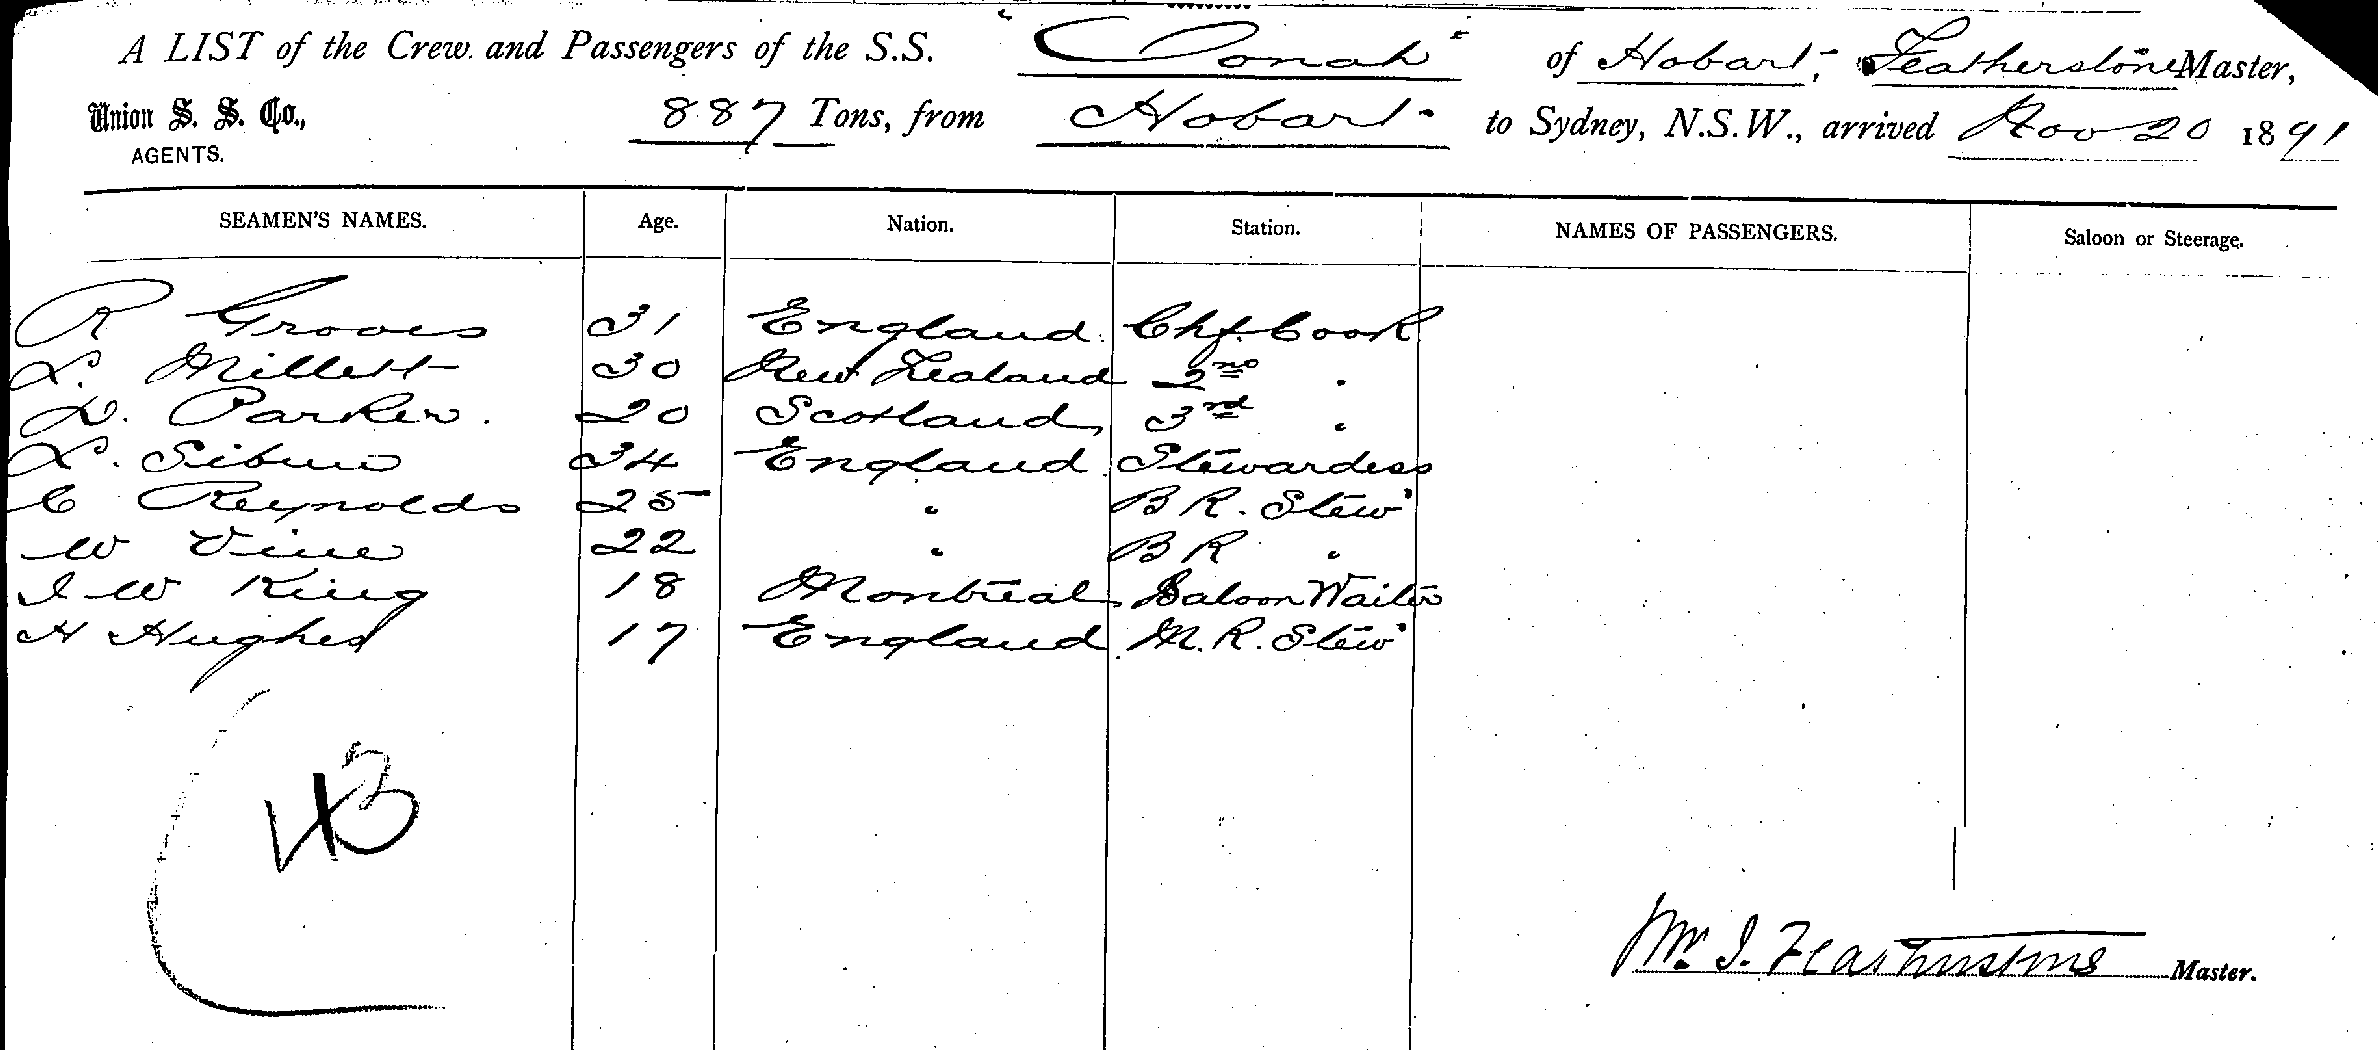 A LIST of the Crew and Passengers of the S.S. "Oonah" of Hobart, Featherstone Master,
Union S. S. Co., 887 Tons, from Hobart to Sydney, N.S.W., arrived Nov 20 1891
AGENTS.
SEAMEN'S NAMES. Age. Nation. Station. NAMES OF PASSENGERS. Saloon or Steerage.
R Groves 31 England Chf. Cook
L. Millett 30 New Zealand 2nd "
D. Parker. 20 Scotland 3rd "
L. Sibun 34 England Stewardess
C Reynolds 25 " B R. Stew
W Vine 22 " B R "
J W King 18 Montreal Saloon Waiter
H Hughes 17 England M. R. Stew
43
Wm. J. Featherstone Master.